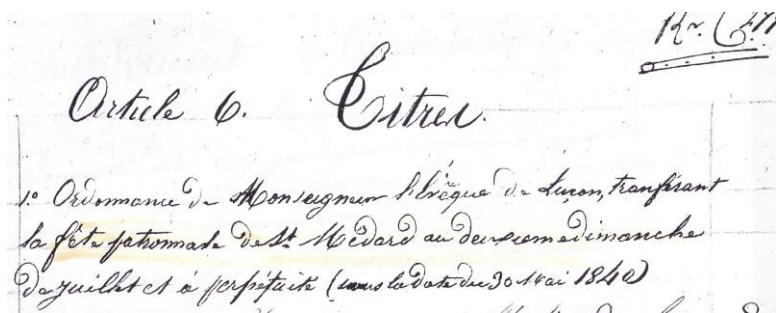 Article 6. Titres.
1º Ordonnance de Monseigneur l'Evêque de Luçon, tranférant
la fête patronnale de St Médard au deuxieme dimanche
de juillet et à perpétuité (sous la date du 30 Mai 1840)